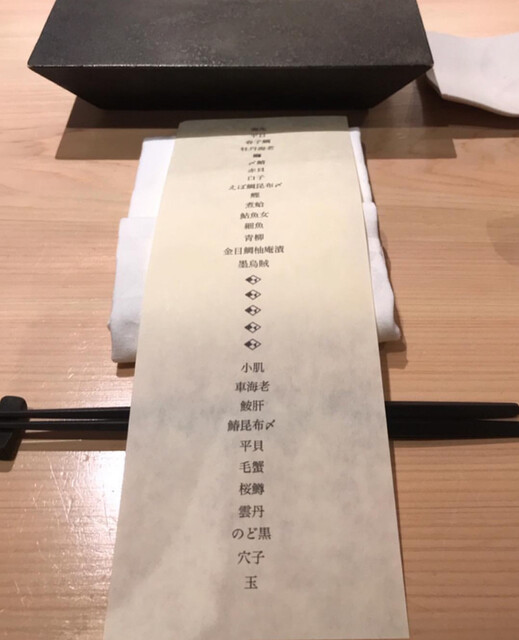 春子鯛
牡丹海老
〆鯖
赤貝
白子
えぼ鯛昆布〆
鰹
煮蛤
鮎魚女
細魚
青柳
金目鯛柚庵漬
墨烏賊
小肌
車海老
鮟肝
鰆昆布〆
平貝
毛蟹
桜鱒
雲丹
のど黒
穴子
玉